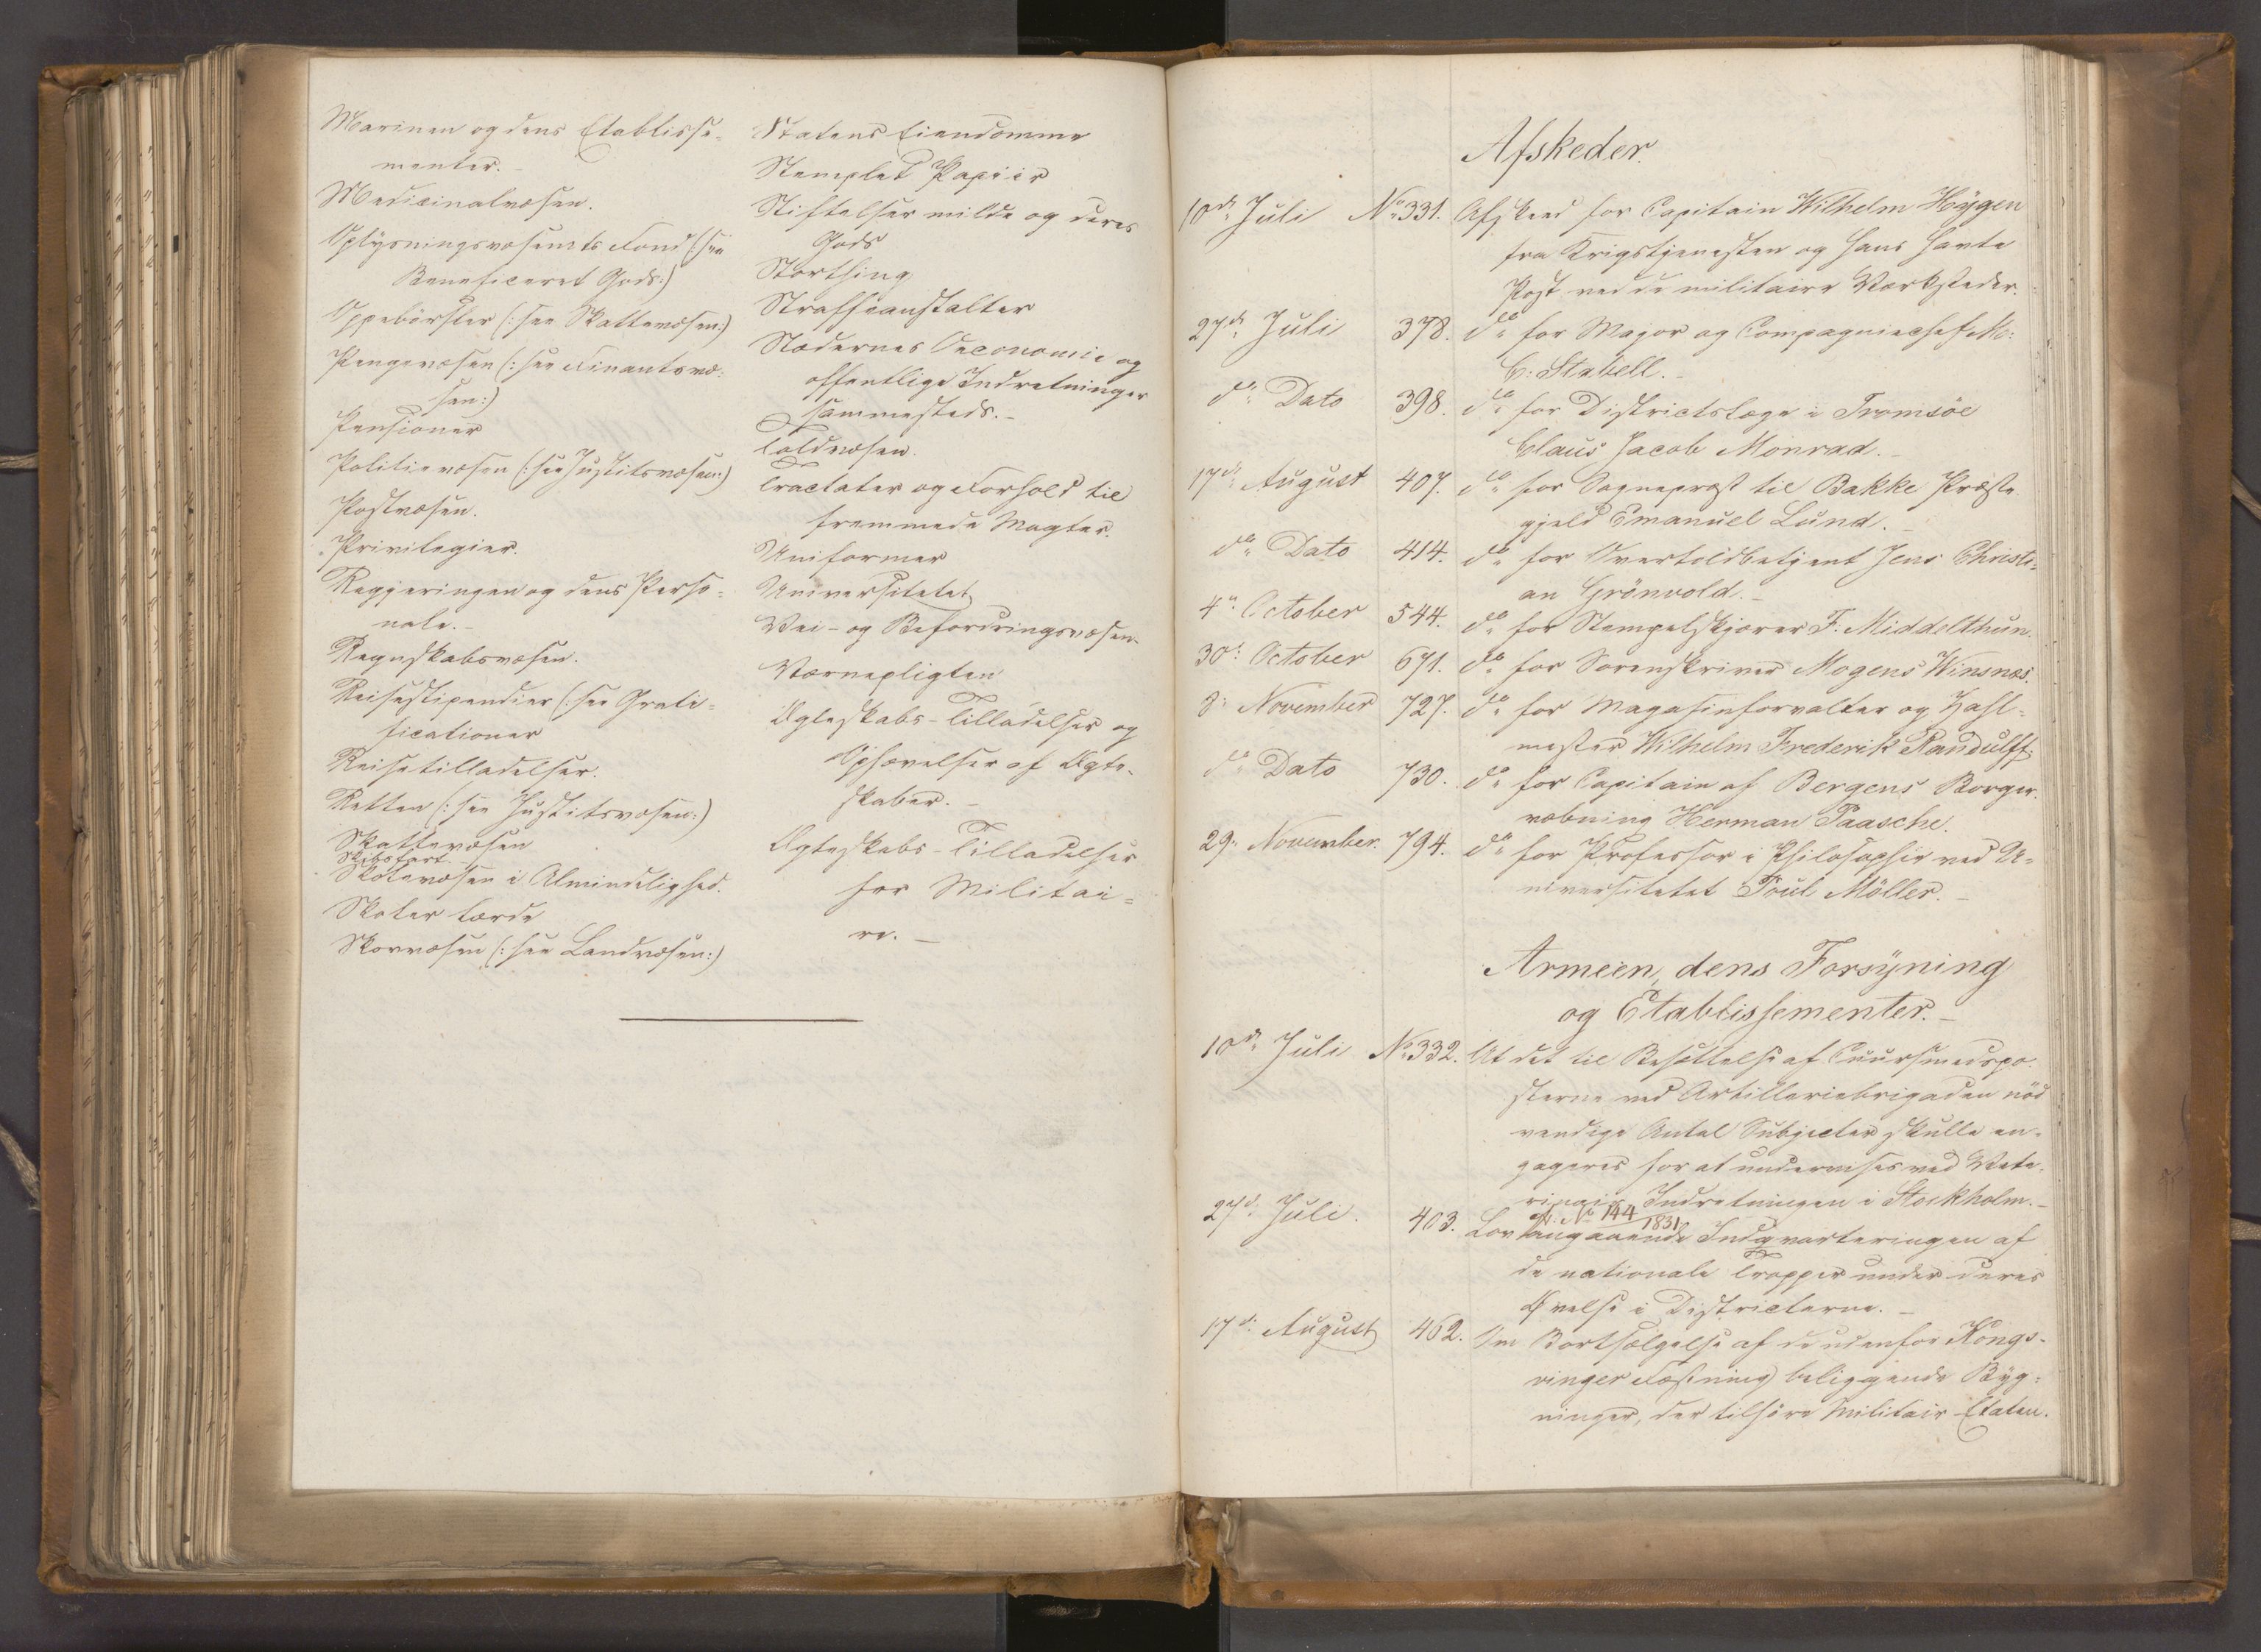 Marinen og dens Etablisse-
menter.
Medicinalvæsen.
Oplysningsvæsenets Fond (: see
Beneficeret Gods:)
Oppebörsler (: see Skattevæsen:)
Pengevæsen (: see Finantsvæ-
sen:)
Pensioner
Politievæsen (: see Justitsvæsen:)
Postvæsen.
Privilegier.
Regjeringen og dens Perso-
nale.
Regnskabsvæsen.
Reisestipendier (: see Grati-
ficationer
Reisetilladelser.
Retten (: see Justitsvæsen:)
Skattevæsen
Skibsfart
Skolevæsen i Almindelighed.
Skoler lærde
Skovvæsen (: see Landvæsen:)
Statens Eiendomme
Stemplet Papiir
Stiftelser milde og deres
Gods
Storthing
Straffeanstalter
Stædernes Oeconomie og
offentlige Indretninger
sammesteds.
Toldvæsen.
Tractater og Forhold til
fremmede Magter.
Uniformer
Universitetet
Vei- og Befordringsvæsen.
Værnepligten
Ægteskabs-Tilladelser og
Ophævelser af Ægte-
skaber.
Ægteskabs-Tilladelser
for Militai-
re.
Afskeder.
10de Juli No 331. Afskeed for Capitain Wilhelm Høygen
fra Krigstjenesten og hans havte
Post ved de militaire Værksteder.
27de Juli 378. do for Major og Compagniechef M:
C: Stabell.
do Dato 398. do for Districtslæge i Tromsöe
Claus Jacob Monrad.
17de August 407. do for Sognepræst til Bakke Præste
gjeld Emanuel Lund.
do Dato 414. do for Overtoldbetjent Jens Christi-
an Grönvold.
4de October 544. do for Stempelskjærer F. Middelthun.
30: October 671. do for Sorenskriver Mogens Winsnæs.
8: November 727. do for Magasinforvalter og Zahl-
mester Wilhelm Frederik Randulff.
do Dato 730. do for Capitain af Bergens Borger-
væbning Herman Paasche.
29: November. 794. do for Professor i Philosophie ved U-
niversitetet Poul Möller.
Armeen, dens Forsÿning
og Etablissementer.
10de Juli No 332. At det til Besættelse af Cuursmedspo-
sterne ved Artilleriebrigaden nöd
vendige Antal Subjecter skulle en-
gageres for at undervises ved Vete-
rinair Indretningen i Stockholm.
No 144/1831
27de Juli. 403. Lov angaaende Indqvarteringen af
de nationale Tropper under deres
Øvelse i Districterne.
17de August 462. Om Bortsælgelse af de udenfor Kongs-
vinger Fæstning beliggende Byg-
ninger, der tilhöre Militair Etaten.